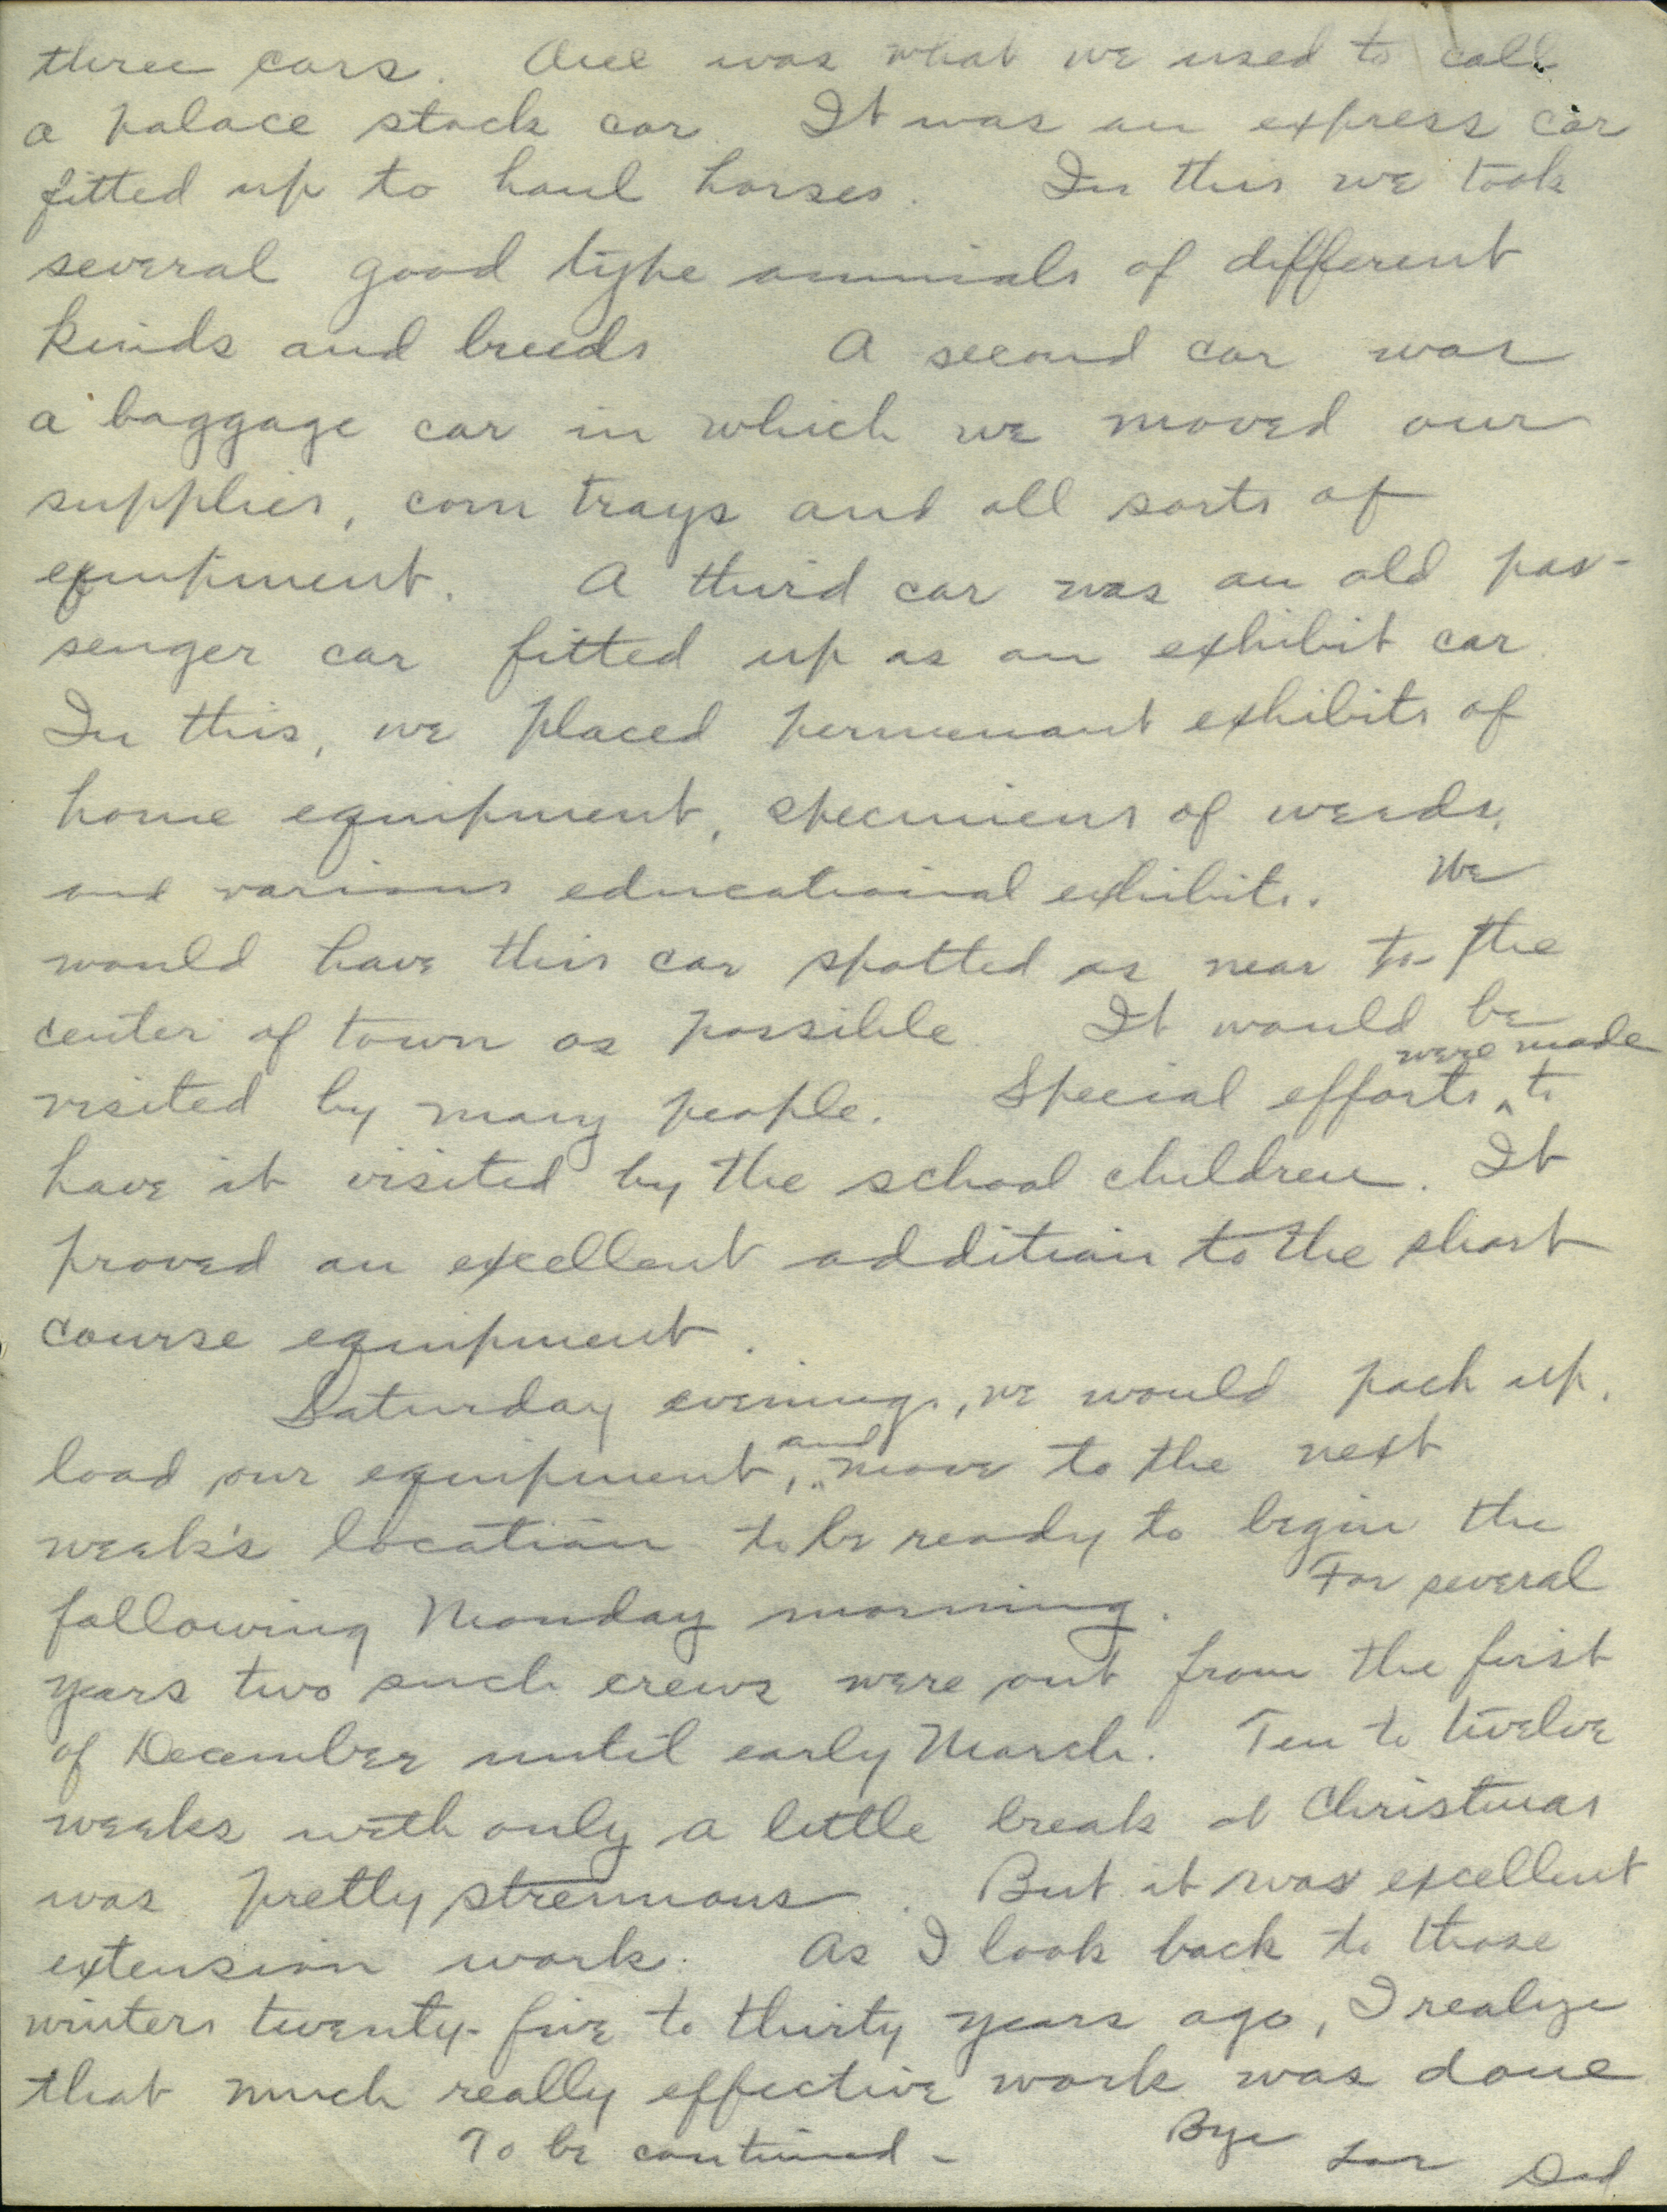 three cars. One was what we used to call
a palace stock car. It was an express car
fitted up to haul horses. In this we took
several good type animals of different
kinds and breeds A second car was
a baggage car in which we moved our
supplies, corn trays and all sorts of
equipment. A third car was an old pas-
senger car fitted up as an exhibit car.
In this, we placed permenant exhibits of
home equipment, specimens of weeds,
and various educational exhibits. We
would have this car spotted as near to the
center of town as possible. It would be
were made
visited by many people. Special efforts ^ to
have it visited by the school children. It
proved an excellent addition to the short
course equipment.
Saturday evenings, we would pack up,
and
load our equipment, ^ move to the next
week's location to be ready to begin the
following Monday morning. For several
years two such crews were out from the first
of December until early March. Ten to twelve
weeks with only a little break at Christmas
was pretty strenuous. But it was excellent
extension work. As I look back to those
winters twenty-five to thirty years ago, I realize
that much really effective work was done
To be continued - Bye Dad